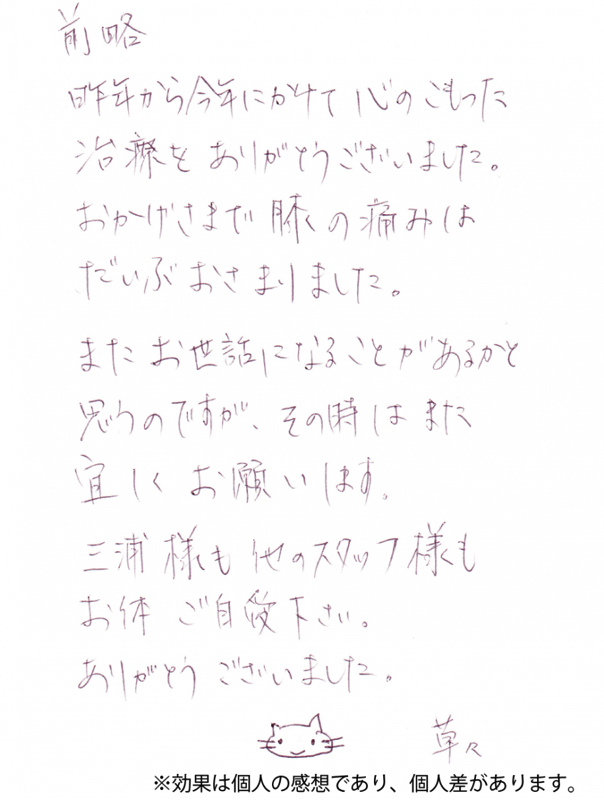 前略
昨年から今年にかけて 心のこもった
治療を ありがとうございました。
おかげさまで 膝の痛みは
だいぶ おさまりました。
また お世話になることがあるかと
思うのですが、その時は また
宜しく お願いします。
三浦様も 他のスタッフ様も
お体 ご自愛下さい。
ありがとう ございました。
草々
※効果は個人の感想であり、個人差があります。